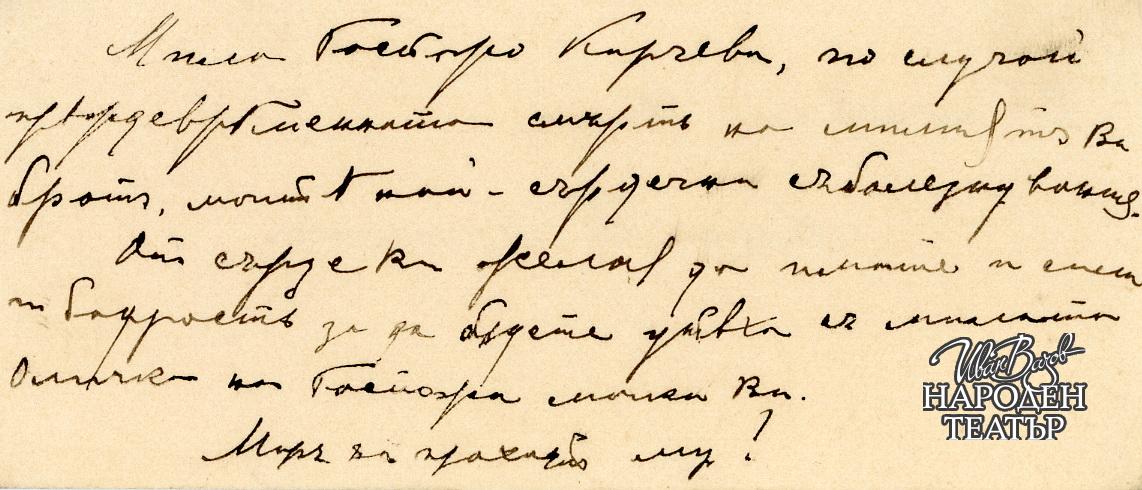 Мила Госпожо Карчева, по случай
преждевременната смърть на милиятъ Ви
братъ, моитѣ най-сърдечни съболезнувания.
Отъ сърдце Ви желая да имате и сили
и бодрость за да бѫдете утѣха съ милата
Оличка на Госпожа майка Ви.
Миръ на прахътъ му!
Иван Вазов
НАРОДЕН
ТЕАТЪР